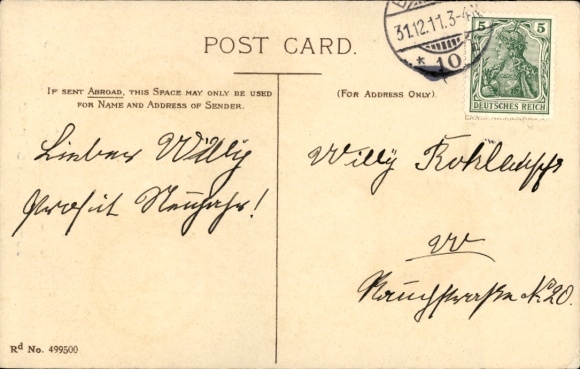 POST CARD.
IF SENT ABROAD, THIS SPACE MAY ONLY BE USED
FOR NAME AND ADDRESS OF SENDER.
(FOR ADDRESS ONLY).
31.12.11.3-4
* 10
5 5
DEUTSCHES REICH
Lieber Willy
Prosit Neujahr!
Willy
Rauchstraße No 20.
Rd No. 499500